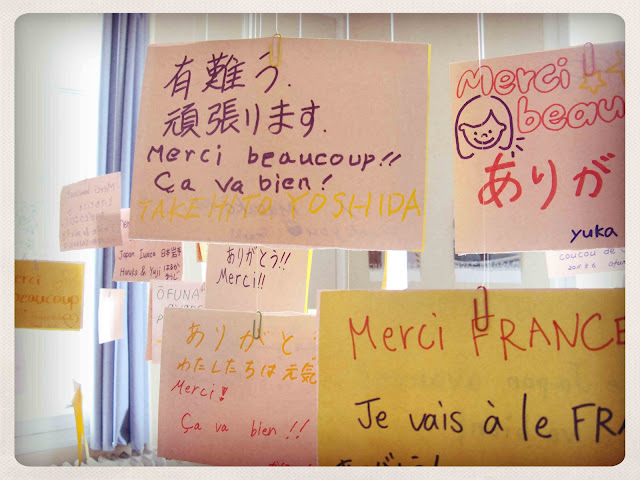 有難う.
頑張ります.
Merci beaucoup!!
Ça va bien!
TAKEHITO YOSHIDA
Merci
beau
ありが
yuka
coucou de
Merci
Japan Iwate 日本岩手
Haruka & Yuji はるか
ありがとう!!
Merci!!
ŌFUNA
erci
beaucoup
ありがと
わたしたちは元気
Merci!
Ça va bien!!
Merci FRANCE
Je vais à le FRA